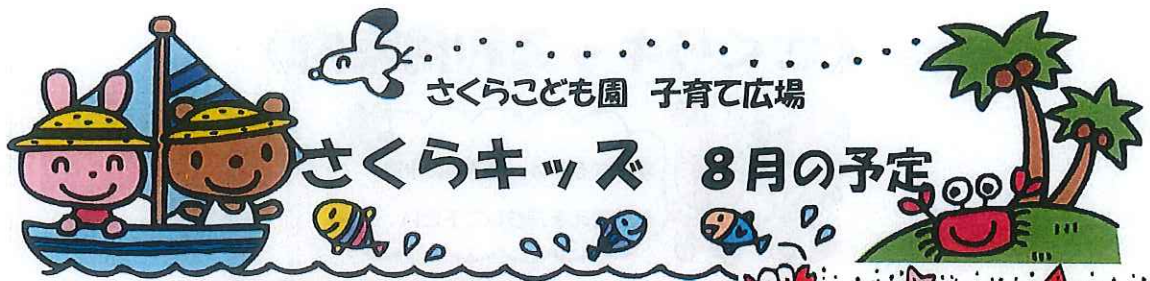 さくらこども園 子育て広場
さくらキッズ 8月の予定